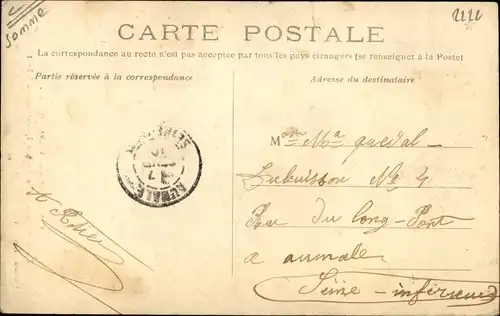 Somme
2222
CARTE POSTALE
La correspondance au recto n'est pas acceptée par tous les pays étrangers (se renseigner à la Poste)
Partie réservée à la correspondance
Adresse du destinataire
AUMALE
Mon Ma queval-
Lubuisson No 4
Rue du long-Pont
a aumale
Seine-inférieure